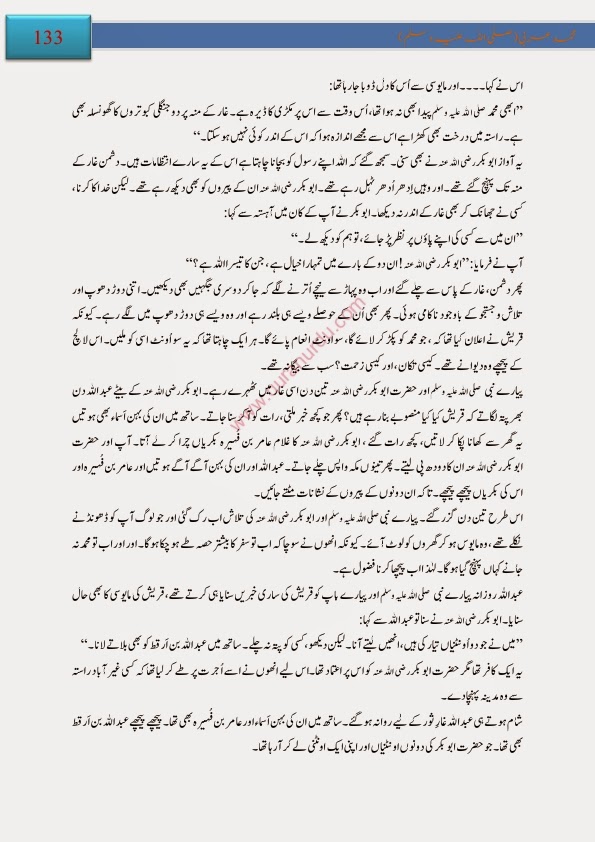 133
محمد عربی (صلی اللہ علیہ وسلم)
اس نے کہا۔۔۔۔اور مایوسی سے اُس کا دل ڈوبا جا رہا تھا:
”ابھی محمد صلی اللہ علیہ وسلم پیدا بھی نہ ہوا تھا، اُس وقت سے اس پر مکڑی کا ڈیرہ ہے۔ غار کے منہ پر دو جنگلی کبوتروں کا گھونسلہ بھی
ہے۔ راستہ میں درخت بھی کھڑا ہے اس سے مجھے اندازہ ہوا کہ اس کے اندر کوئی نہیں ہو سکتا۔“
یہ آواز ابو بکر رضی اللہ عنہ نے بھی سنی۔ سمجھ گئے کہ اللہ اپنے رسول کو بچانا چاہتا ہے اس کے یہ سارے انتظامات ہیں۔ دشمن غار کے
منہ تک پہنچ گئے تھے۔ اور وہیں اِدھر اُدھر ٹہل رہے تھے۔ ابو بکر رضی اللہ عنہ ان کے پیروں کو بھی دیکھ رہے تھے۔ لیکن خدا کا کرنا،
کسی نے جھانک کر بھی غار کے اندر نہ دیکھا۔ ابو بکر نے آپ کے کان میں آہستہ سے کہا:
”ان میں سے کسی کی اپنے پاؤں پر نظر پڑ جائے، تو ہم کو دیکھ لے۔“
آپ نے فرمایا: ”ابو بکر رضی اللہ عنہ! ان دو کے بارے میں تمہارا خیال ہے، جن کا تیسرا اللہ ہے؟“
پھر دشمن، غار کے پاس سے چلے گئے اور اب وہ پہاڑ سے نیچے اُترنے لگے کہ جا کر دوسری جگہیں بھی دیکھیں۔ اتنی دوڑ دھوپ اور
تلاش و جستجو کے باوجود ناکامی ہوئی۔ پھر بھی اُن کے حوصلے ویسے ہی بلند رہے اور وہ ویسے ہی دوڑ دھوپ میں لگے رہے۔ کیونکہ
قریش نے اعلان کیا تھا کہ، جو محمد کو پکڑ کر لائے گا، سو اونٹ انعام پائے گا۔ ہر ایک چاہتا تھا کہ یہ سو اُونٹ اسی کو ملیں۔ اس لالچ
کے پیچھے وہ دیوانے تھے۔ کیسی تکان، اور کیسی زحمت؟ سب سے بیگانہ تھے۔
www.sunnurdu.com
پیارے نبی صلی اللہ علیہ وسلم اور حضرت ابو بکر رضی اللہ عنہ تین دن اسی غار میں ٹھہرے رہے۔ ابو بکر رضی اللہ عنہ کے بیٹے عبد اللہ دن
بھر پتہ لگاتے کہ قریش کیا کیا منصوبے بنا رہے ہیں؟ پھر جو کچھ خبر ملتی، رات کو آ کر سنا جاتے۔ ساتھ میں ان کی بہن اَسماء بھی ہوتیں
یہ گھر سے کھانا پکا کر لاتیں، کچھ رات گئے، ابو بکر رضی اللہ عنہ کا غلام عامر بن فُہیرہ بکریاں چرا کر لے آتا۔ آپ اور حضرت
ابو بکر رضی اللہ عنہ ان کا دودھ پی لیتے۔ پھر تینوں مکہ واپس چلے جاتے۔ عبد اللہ اور ان کی بہن آگے آگے ہوتیں اور عامر بن فُہیرہ اور
اس کی بکریاں پیچھے پیچھے۔ تا کہ ان دونوں کے پیروں کے نشانات مٹتے جائیں۔
اس طرح تین دن گزر گئے۔ پیارے نبی صلی اللہ علیہ وسلم اور ابو بکر رضی اللہ عنہ کی تلاش اب رک گئی اور جو لوگ آپ کو ڈھونڈنے
نکلے تھے، وہ مایوس ہو کر گھروں کو لوٹ آئے۔ کیونکہ انھوں نے سوچا کہ اب تو سفر کا بیشتر حصہ طے ہو چکا ہو گا۔ اور اور اب تو محمد نہ
جانے کہاں پہنچ گیا ہو گا۔ لہٰذا اب پیچھا کرنا فضول ہے۔
عبد اللہ روزانہ پیارے نبی صلی اللہ علیہ وسلم اور پیارے باپ کو قریش کی ساری خبریں سنایا ہی کرتے تھے، قریش کی مایوسی کا بھی حال
سنایا۔ ابو بکر رضی اللہ عنہ نے سنا تو عبد اللہ سے کہا:
”میں نے جو دو اُونٹنیاں تیار کی ہیں، انھیں لیتے آنا۔ لیکن دیکھو، کسی کو پتہ نہ چلے۔ ساتھ میں عبد اللہ بن اَرقط کو بھی بلاتے لانا۔“
یہ ایک کافر تھا مگر حضرت ابو بکر رضی اللہ عنہ کو اس پر اعتماد تھا۔ اس لیے انھوں نے اسے اُجرت پر طے کر لیا تھا کہ کسی غیر آباد راستہ
سے وہ مدینہ پہنچا دے۔
شام ہوتے ہی عبد اللہ غارِ ثور کے لیے روانہ ہو گئے۔ ساتھ میں ان کی بہن اَسماء اور عامر بن فُہیرہ بھی تھا۔ پیچھے پیچھے عبد اللہ بن اَرقط
بھی تھا۔ جو حضرت ابو بکر کی دونوں اونٹنیاں اور اپنی ایک اونٹنی لے کر آ رہا تھا۔